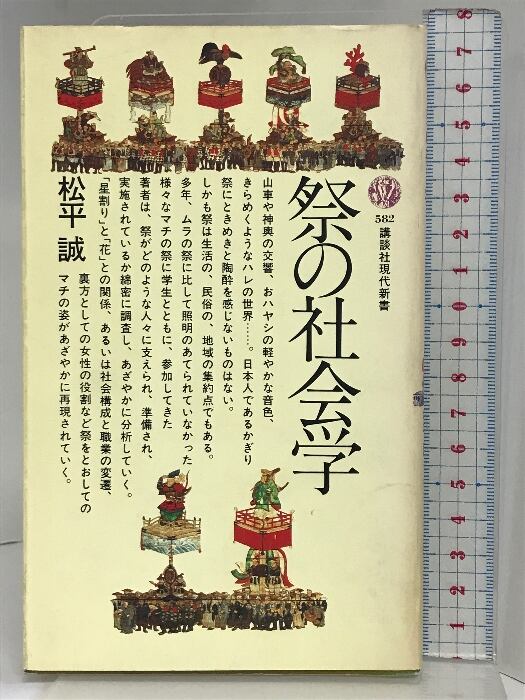 582
講談社現代新書
祭の社会学
山車や神輿の交響、おハヤシの軽やかな音色、
きらめくようなハレの世界……。日本人であるかぎり
祭にときめきと陶酔を感じないものはない。
しかも祭は生活の、民俗の、地域の集約点でもある。
多年、ムラの祭に比して照明のあてられていなかった
様々なマチの祭に学生とともに、参加してきた
著者は、祭がどのような人々に支えられ、準備され、
実施されているか綿密に調査し、あざやかに分析していく。
「星割り」と「花」との関係、あるいは社会構成と職業の変遷、
裏方としての女性の役割など祭をとおしての
マチの姿があざやかに再現されていく。
松平 誠
8
7
6
5
4
3
2
1
0
1
2
3
4
5
6
7
8
9
1